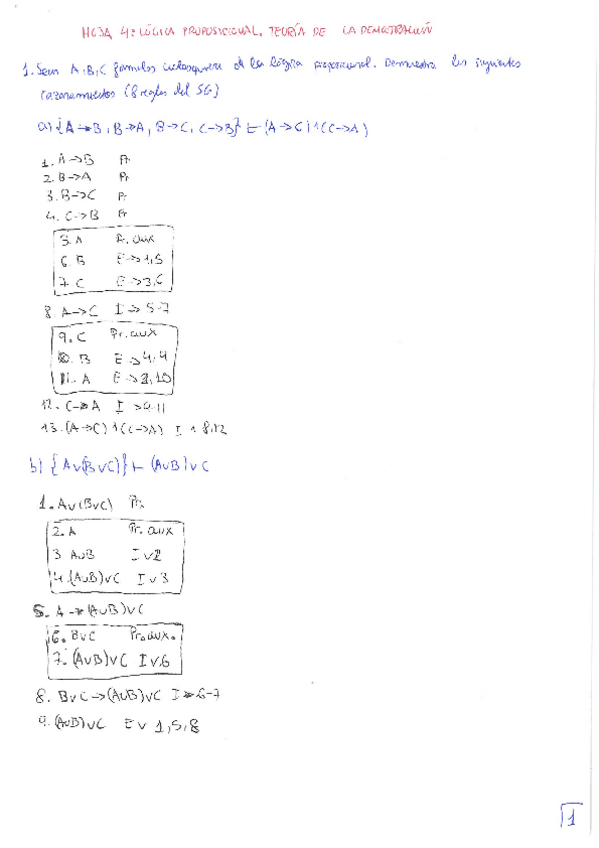 HOJA 4: LÓGICA PROPOSICIONAL. TEORÍA DE LA DEMOSTRACIÓN
1. Sean A, B, C fórmulas cualesquiera de la lógica proposicional. Demuestra los siguientes
razonamientos (8 reglas del SG)
a) {A→B, B→A, B→C, C→B} ⊢ (A→C)∧(C→A)
1. A→B Pr
2. B→A Pr
3. B→C Pr
4. C→B Pr
5. A Pr. aux
6. B E→1,5
7. C E→3,6
8. A→C I→ 5-7
9. C Pr. aux
10. B E→4,4
11. A E→2,10
12. C→A I→9-11
13. (A→C)∧(C→A) I∧ 8,12
b) {A∨(B∨C)} ⊢ (A∨B)∨C
1. A∨(B∨C) Pr.
2. A Pr. aux
3 A∨B I∨2
4. (A∨B)∨C I∨3
5. A→(A∨B)∨C
6. B∨C Pr. aux.
7. (A∨B)∨C I∨6
8. B∨C→(A∨B)∨C I→6-7
9. (A∨B)∨C E∨ 1,5,8
1